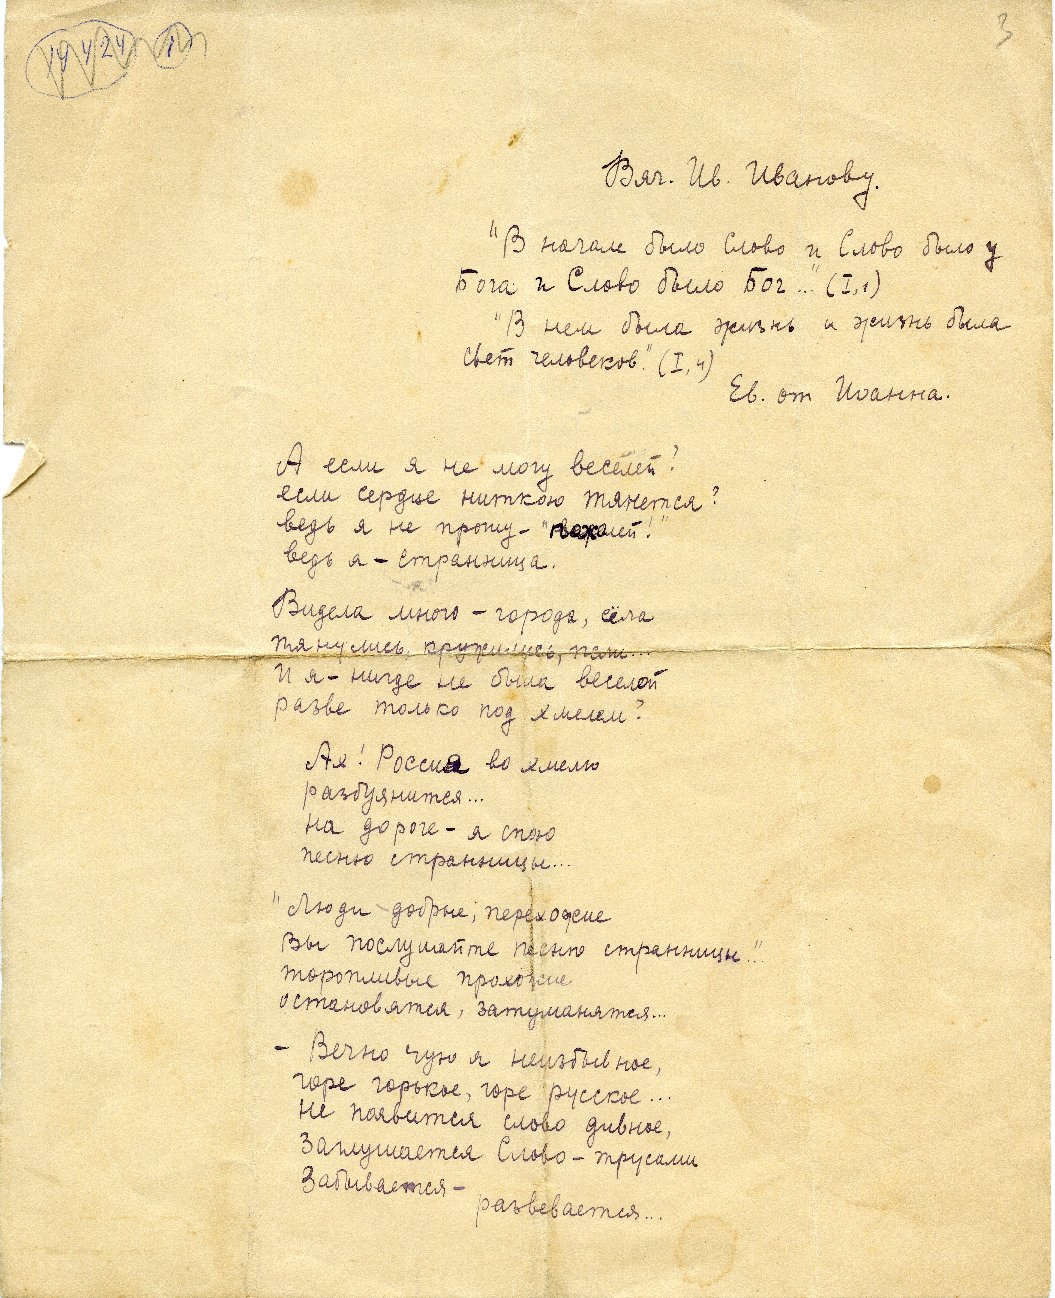 19424 1
3
Вяч. Ив. Иванову.
"В начале было Слово и Слово было у
Бога и Слово было Бог..." (I,1)
"В нем была жизнь и жизнь была
свет человеков." (I,4)
Ев. от Иоанна.
А если я не могу веселей?
если сердце ниткою тянется?
ведь я не прошу – "пожалей!"
ведь я – странница.
Видела много – города, сёла
тянулись, кружились, пели...
И я – нигде не была веселой
разве только под хмелем?
Ах! Россия во хмелю
разбуянится...
на дороге – я спою
песню странницы...
"Люди добрые, перехожие
Вы послушайте песню странницы..."
торопливые прохожие
остановятся, затуманятся...
– Вечно чую я неизбывное,
горе горькое, горе русское...
не появится слово дивное,
Заглушается Слово – трусами
Забывается –
развевается...